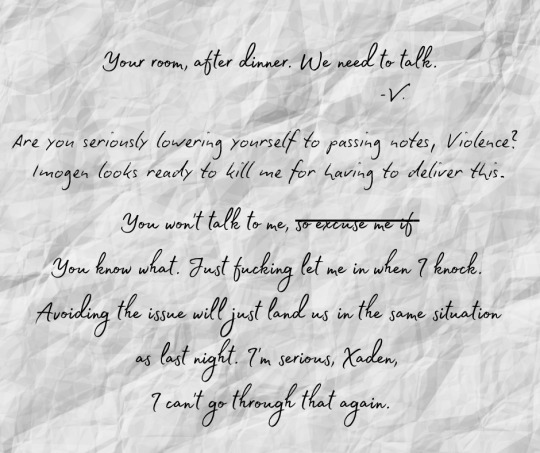 Your room, after dinner. We need to talk.
-V.
Are you seriously lowering yourself to passing notes, Violence?
Imogen looks ready to kill me for having to deliver this.
You won't talk to me, so excuse me if
You know what. Just fucking let me in when I knock.
Avoiding the issue will just land us in the same situation
as last night. I'm serious, Xaden,
I can't go through that again.